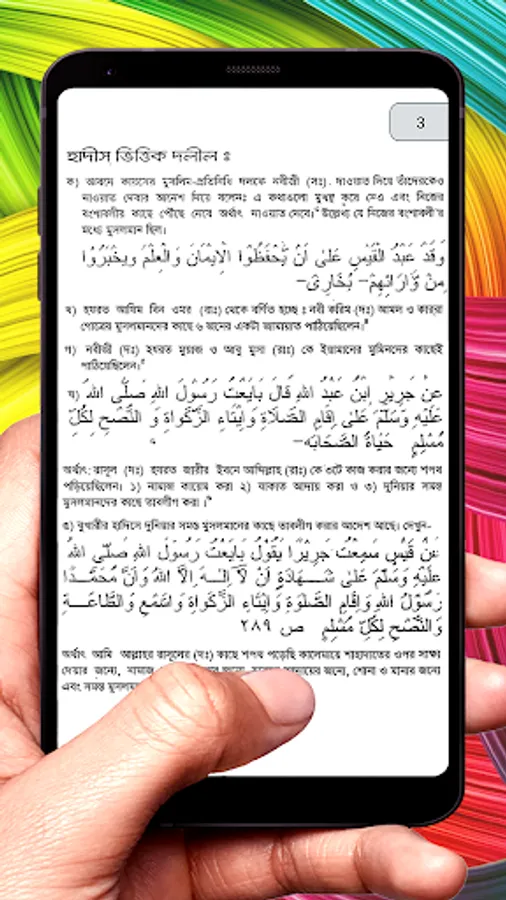 3
হাদীস ভিত্তিক দলীল ঃ
ক) আবদে কায়সের মুসলিম-প্রতিনিধি দলকে নবীজী (সঃ). দাওয়াত দিয়ে তাঁদেরকেও
দাওয়াত দেবার আদেশ দিয়ে বলেনঃ এ কথাগুলো মুখস্থ করে নেও এবং নিজের
বংশাবলীর কাছে পৌঁছে দেবে অর্থাৎ দাওয়াত দেবে। উল্লেখ্য যে নিজের বংশাবলী'র
মধ্যে মুসলমান ছিল।
وَفَدَ عَبْدُ الْقَيْسِ عَلٰى اَنْ يَّحْفَظُوْا الْاِيْمَانَ وَالْعِلْمَ وَيُخْبِرُوْا
مِنْ وَّارَائِهِمْ- بُخَارِىْ-
খ) হযরত আযিম বিন ওমর (রাঃ) থেকে বর্ণিত হচ্ছে ঃ নবী করিম (দঃ) আমল ও কাররা
গোত্রের মুসলমানদের কাছে ৬ জনের একটা জামায়াত পাঠিয়েছিলেন।
গ) নবীজী (দঃ) হযরত মুয়াজ ও আবু মুসা (রাঃ) কে ইয়ামানের মুমিনদের কাছেই
পাঠিয়েছিলেন।
ঘ) عَنْ جَرِيْرِ ابْنِ عَبْدُ اللّٰهِ قَالَ بَايَعْتُ رَسُوْلَ اللّٰهِ صَلَّى اللّٰهُ
عَلَيْهِ وَسَلَّمَ عَلٰى اِقَامِ الصَّلَاةِ وَاِيْتَاءِ الزَّكٰوةِ وَ النُّصْحِ لِكُلِّ
مُسْلِمٍ حَيَاةُ الصَّحَابَه-
অর্থাৎ: রাসূল (দঃ) হযরত জারীর ইবনে আব্দিল্লাহ (রাঃ) কে ৩টে কাজ করার জন্যে শপথ
পড়িয়েছিলেন। ১) নামাজ কায়েম করা ২) যাকাত আদায় করা ও ৩) দুনিয়ার সমস্ত
মুসলমানদের কাছে তাবলীগ করা।
ঙ) বুখারীর হাদিসে দুনিয়ার সমস্ত মুসলমানের কাছে তাবলীগ করার আদেশ আছে। দেখুন-
عَنْ قَيْسٍ سَمِعْتُ جَرِيْرًا يَقُوْلُ بَايَعْتُ رَسُوْلَ اللّٰهِ صَلَّى اللّٰهُ
عَلَيْهِ وَسَلَّمَ عَلٰى شَهَادَةِ اَنْ لَّا اِلٰهَ اِلَّا اللّٰهُ وَاَنَّ مُحَمَّدًا
رَسُوْلُ اللّٰهِ وَاِقَامِ الصَّلٰوةِ وَاِيْتَاءِ الزَّكٰوةِ وَاسَّمْعِ وَالطَّاعَةِ
وَالنُّصْحِ لِكُلِّ مُسْلِمٍ ص ٢٨٩
অর্থাৎ আমি আল্লাহর রাসূলের (দঃ) কাছে শপথ পড়েছি কালেমায়ে শাহাদাতের ওপর সাক্ষ্য
দেয়ার জন্যে, নামাজ জন্যে, শোনা ও মানার জন্যে
এবং সমস্ত